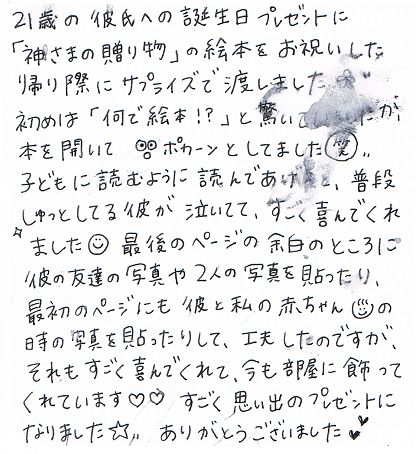 21歳の彼氏への誕生日プレゼントに
「神さまの贈り物」の絵本をお祝いした
帰り際にサプライズで渡しました
初めは「何で絵本!?」と驚いていましたが、
本を開いて ポカーンとしてました(笑)
子どもに読むように読んであげると、普段
しゅっとしてる彼が泣いてて、すごく喜んでくれ
ました 最後のページの余白のところに
彼の友達の写真や2人の写真を貼ったり、
最初のページにも彼と私の赤ちゃんの
時の写真を貼ったりして、工夫したのですが、
それもすごく喜んでくれて、今も部屋に飾って
くれています♡♡ すごく思い出のプレゼントに
なりました☆ ありがとうございました